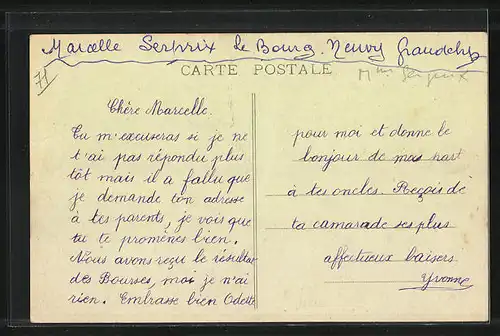 Marcelle Serprix le Bourg. Neuvy Grandchp
71
CARTE POSTALE
Mme Serprix
Chère Marcelle.
Tu m'excuseras si je ne
t'ai pas répondu plus
tôt mais il a fallu que
je demande ton adresse
à tes parents, je vois que
tu te promènes bien.
Nous avons reçu le résultat
des Bourses, moi je n'ai
rien. Embrasse bien Odette
pour moi et donne le
bonjour de ma part
à tes oncles. Reçois de
ta camarade ses plus
affectueux baisers.
Yvonne